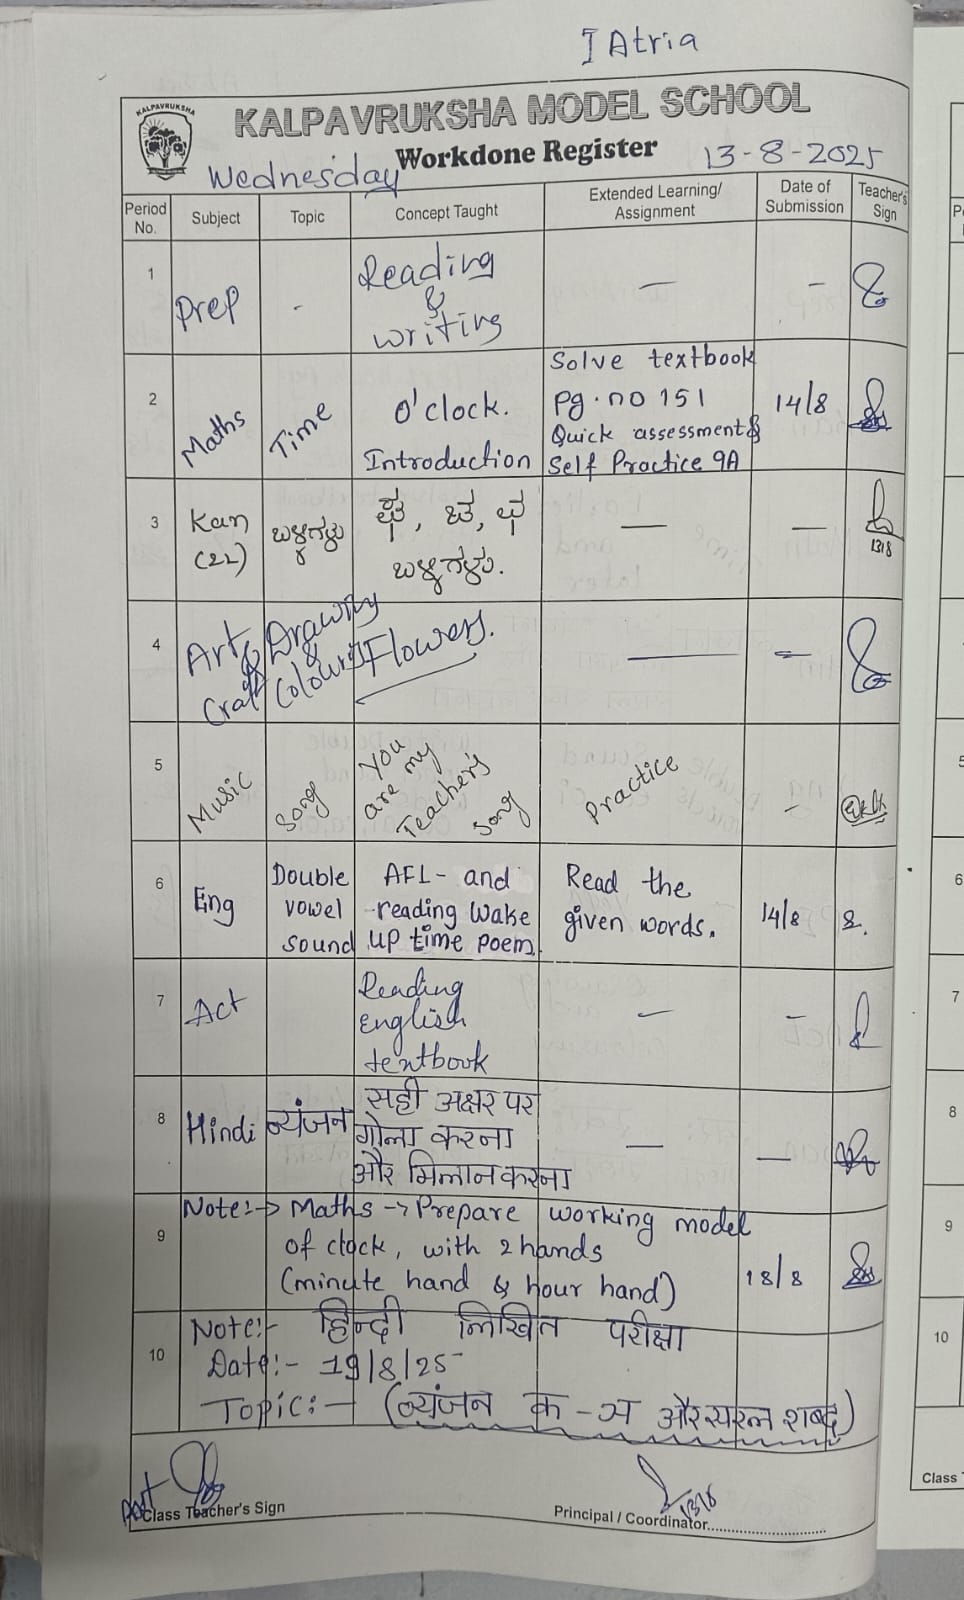 I Atria
KALPAVRUKSHA
KALPAVRUKSHA MODEL SCHOOL
Workdone Register
Wednesday
13-8-2025
Period No. Subject Topic Concept Taught Extended Learning/ Assignment Date of Submission Teacher's Sign
1 Prep - Reading & writing — -
2 Maths Time O'clock. Introduction Solve textbook pg.no 151 Quick assessment & Self Practice 9A 14/8
3 Kan (2L) ಬಳ್ಳಿಗಳು — —
ಬಳ್ಳಿಗಳು.
1318
4 Art & Craft Drawing & Colouring Flowers. — -
5 Music Song You are my Teacher's song Practice -
6 Eng Double vowel sound AFL- and reading Wake up time poem. Read the given words. 14/8
7 Act Reading English textbook — -
8 Hindi व्यंजन सही अक्षर पर गोला करना और मिलान करना — —
9 Note:-> Maths -> Prepare working model
of clock, with 2 hands
(minute hand & hour hand) 18/8
10 Note:- हिन्दी लिखित परीक्षा
Date:- 19/8/25
Topic:- (व्यंजन क-ञ और सरल शब्द)
Class Teacher's Sign
Principal / Coordinator
P
5
6
7
8
9
10
Class